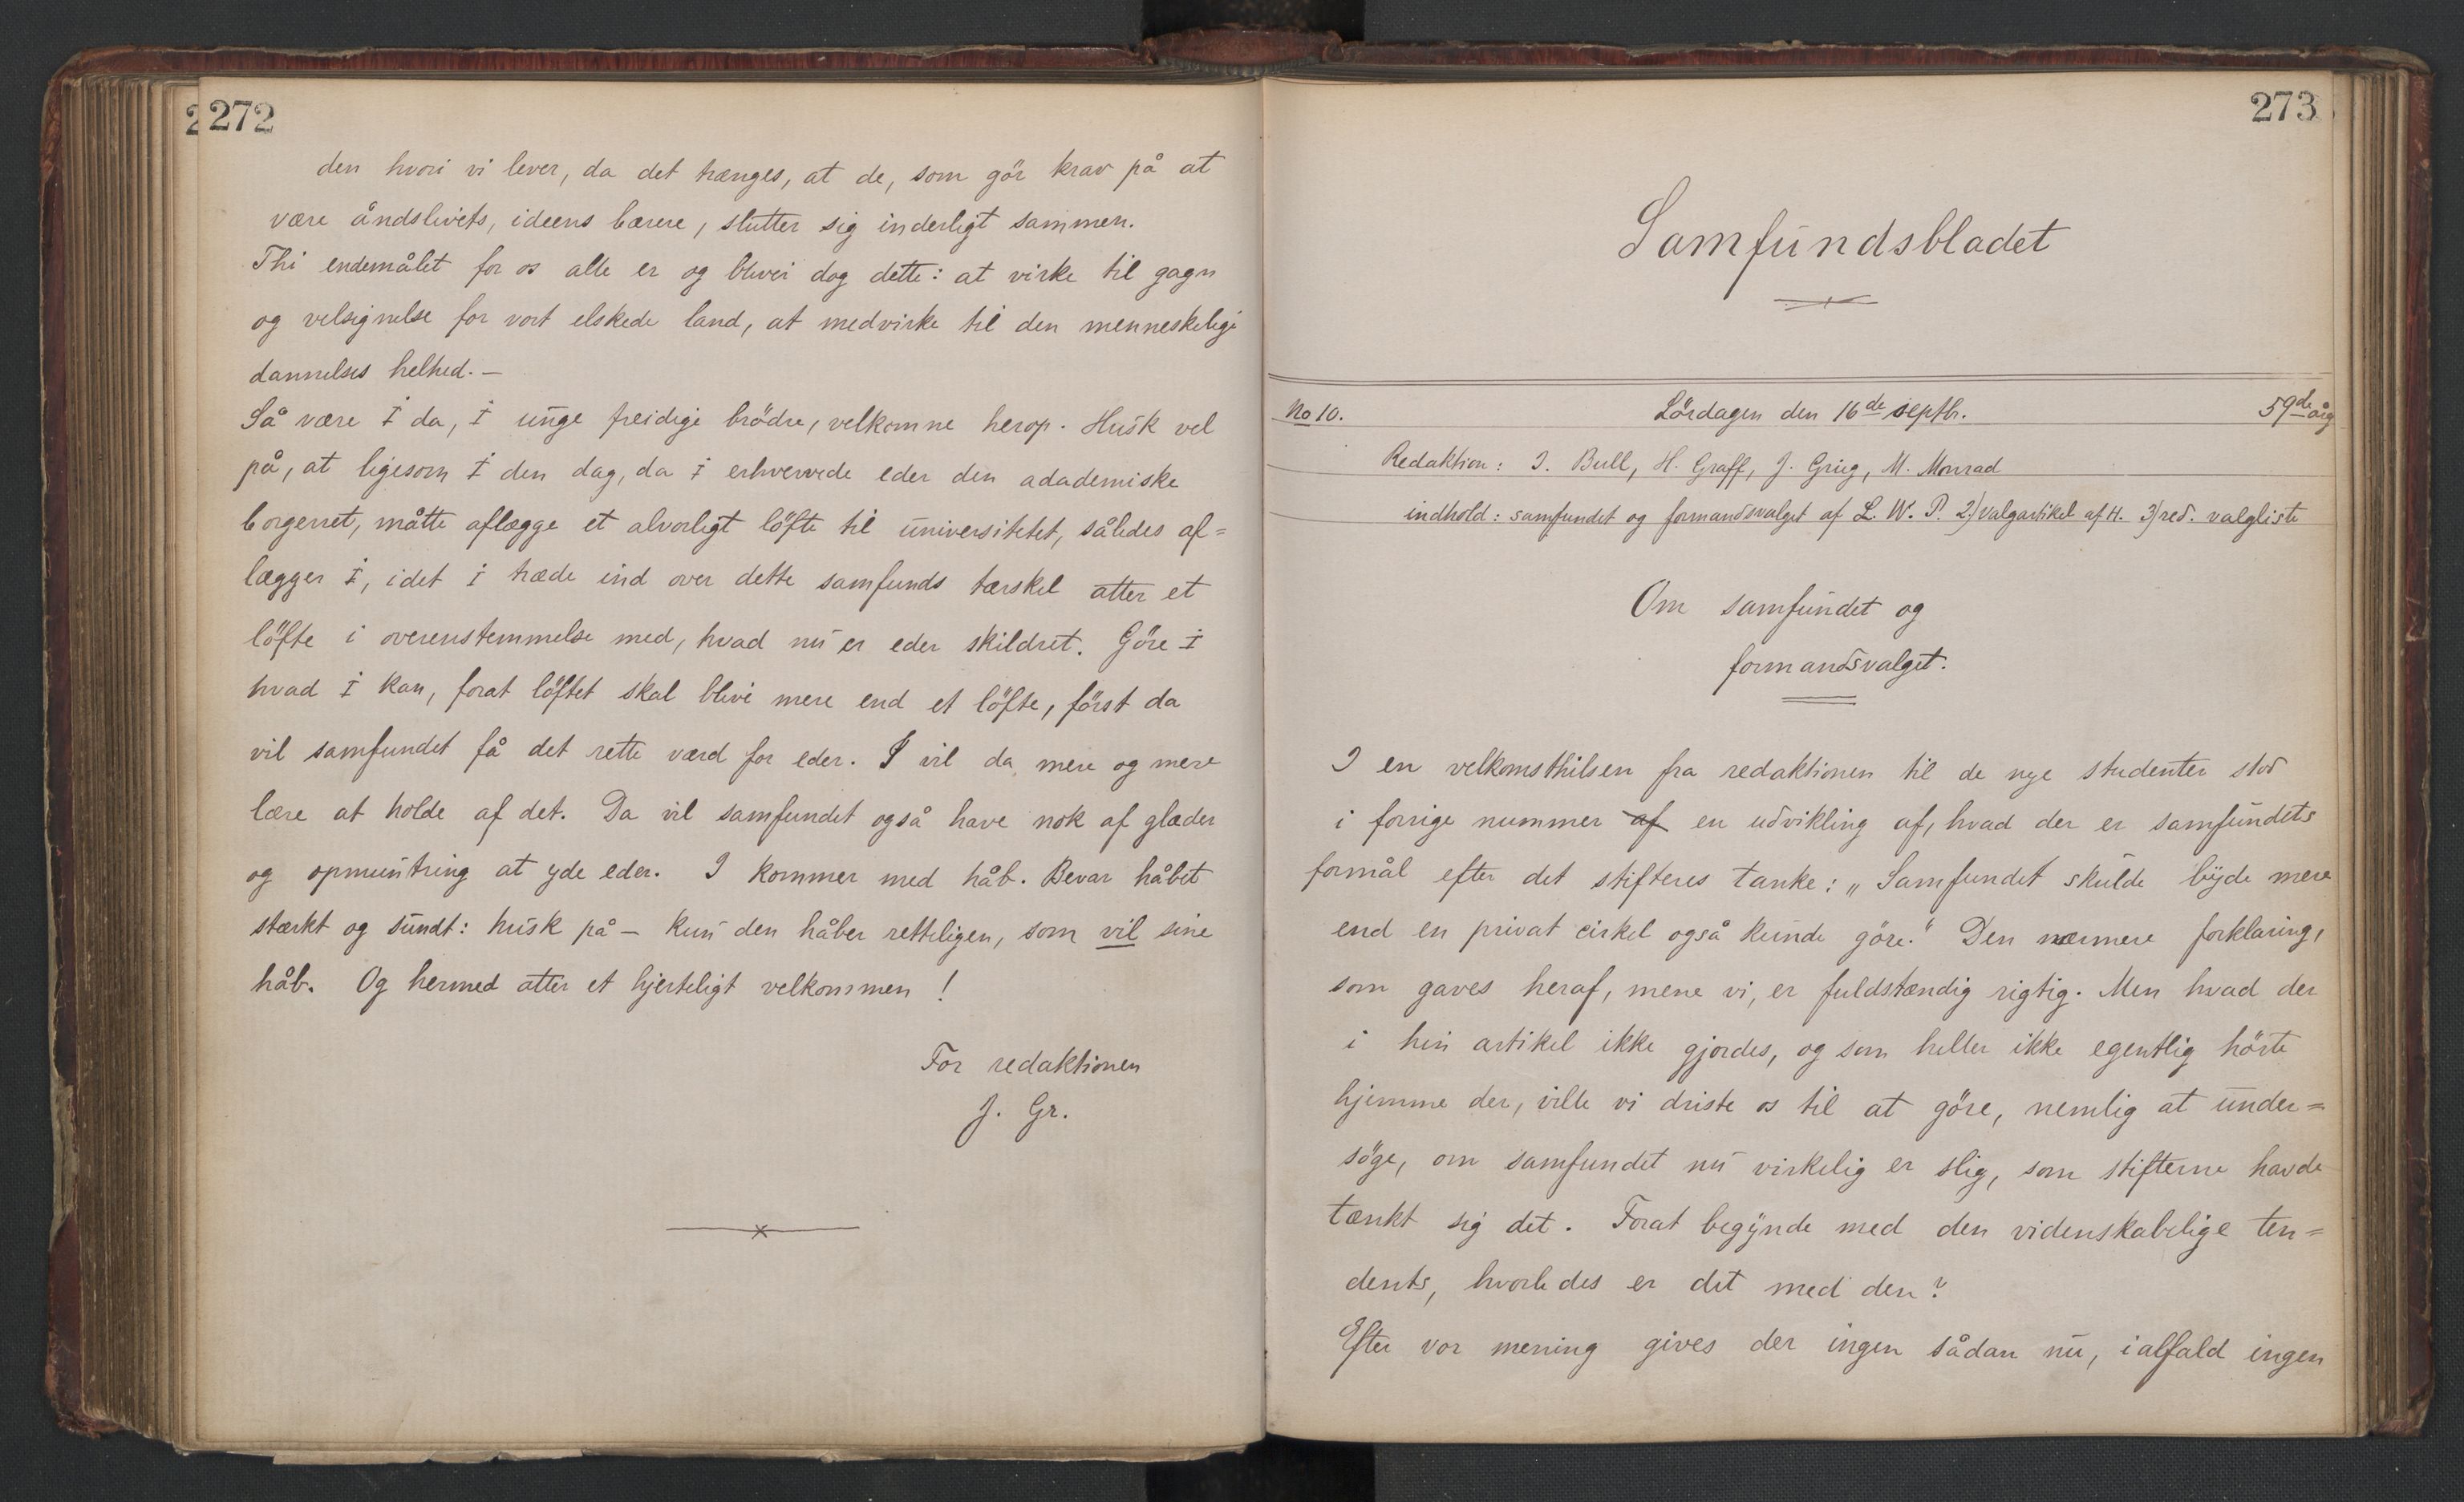 272
den hvori vi lever, da det trænges, at de, som gör krav på at
være åndslivets, ideens bærere, slutter sig inderligt sammen.
Thi endemålet for os alle er og blivir dog dette: at virke til gagn
og velsignelse for vort elskede land, at medvirke til den menneskelige
dannelses helhed. —
Så være I da, I unge freidige brödre, velkomne herop. Husk vel
på, at ligesom I den dag, da i erhvervede eder den adademiske
borgerret, måtte aflægge et alvorligt löfte til universitetet, således af=
lægger I, idet i træde ind over dette samfunds tærskel atter et
löfte i overenstemmelse med, hvad nu er eder skildret. Göre I
hvad I kan, forat löftet skal blive mere end et löfte, först da
vil samfundet få det rette værd for eder. I vil da mere og mere
lære at holde af det. Da vil samfundet også have nok af glæder
og opmuntring at yde eder. I kommer med håb. Bevar håbet
stærkt og sundt: husk på — kun den håber retteligen, som vil sine
håb. Og hermed atter et hjerteligt velkommen!
For redaktionen
J. Gr.
273
Samfundsbladet
No 10. Lördagen den 16de septbr. 59de årg
Redaktion: I. Bull, H. Graff, J. Grieg, M. Monrad
indhold: samfundet og formandsvalget af L. W. P. 2) valgartikel af H. 3) red. valgliste
Om samfundet og
formandsvalget.
I en velkomsthilsen fra redaktionen til de nye studenter stod
i forrige nummer af en udvikling af, hvad der er samfundets
formål efter det stifteres tanke: „Samfundet skulde byde mere
end en privat cirkel også kunde göre." Den nærmere forklaring,
som gaves heraf, mene vi, er fuldstændig rigtig. Men hvad der
i hin artikel ikke gjordes, og som heller ikke egentlig hörte
hjemme der, ville vi driste os til at göre, nemlig at under=
söge, om samfundet nu virkelig er slig, som stifterne havde
tænkt sig det. Forat begynde med den videnskabelige ten=
dents, hvorledes er det med den?
Efter vor mening gives der ingen sådan nu, ialfald ingen